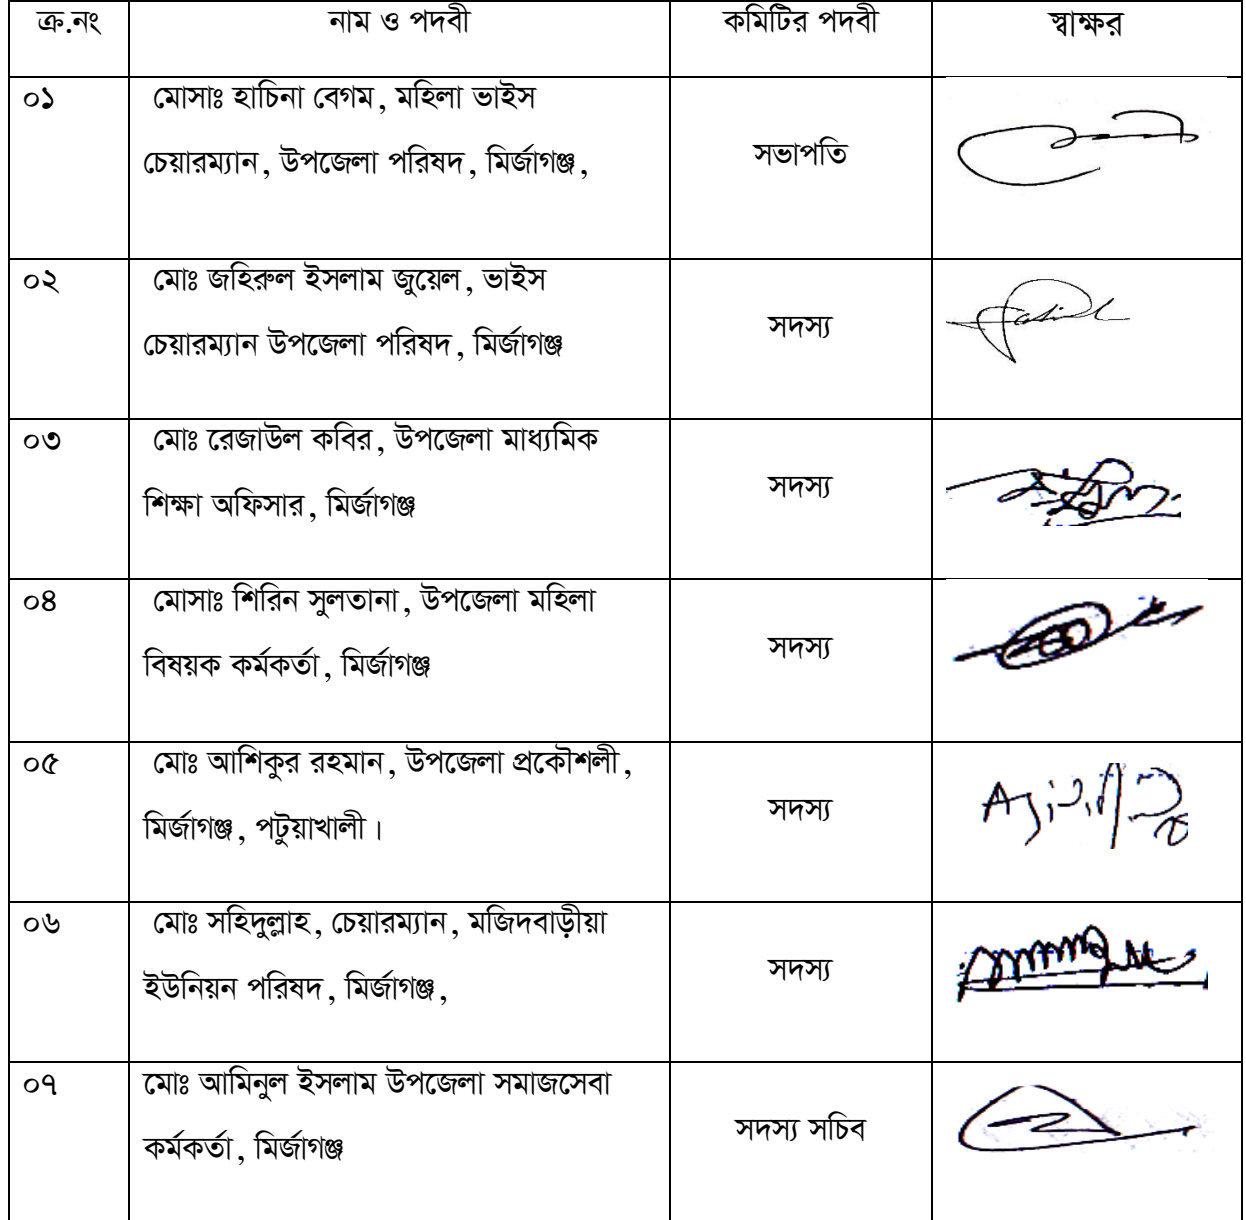 ক্র.নং নাম ও পদবী কমিটির পদবী স্বাক্ষর
০১ মোসাঃ হাচিনা বেগম, মহিলা ভাইস
চেয়ারম্যান, উপজেলা পরিষদ, মির্জাগঞ্জ, সভাপতি
০২ মোঃ জহিরুল ইসলাম জুয়েল, ভাইস
চেয়ারম্যান উপজেলা পরিষদ, মির্জাগঞ্জ সদস্য
০৩ মোঃ রেজাউল কবির, উপজেলা মাধ্যমিক
শিক্ষা অফিসার, মির্জাগঞ্জ সদস্য
০৪ মোসাঃ শিরিন সুলতানা, উপজেলা মহিলা
বিষয়ক কর্মকর্তা, মির্জাগঞ্জ সদস্য
০৫ মোঃ আশিকুর রহমান, উপজেলা প্রকৌশলী,
মির্জাগঞ্জ, পটুয়াখালী। সদস্য
০৬ মোঃ সহিদুল্লাহ, চেয়ারম্যান, মজিদবাড়ীয়া
ইউনিয়ন পরিষদ, মির্জাগঞ্জ, সদস্য
০৭ মোঃ আমিনুল ইসলাম উপজেলা সমাজসেবা
কর্মকর্তা, মির্জাগঞ্জ সদস্য সচিব